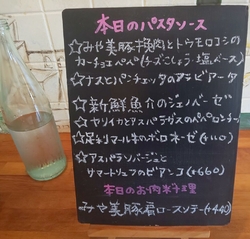 本日のパスタソース
☆みや美豚挽肉とトウモロコシの
カーチョエペペ(チーズ・こしょう・塩ベース)
☆ナスとパンチェッタのアラビアータ
☆新鮮魚介のジェノベーゼ
☆ヤリイカとアスパラガスのペペロンチーノ
☆足利マール牛のボロネーゼ(+110)
☆アスパラソバージュと
サマートリュフのビアンコ(+660)
本日のお肉料理
みや美豚肩ロースソテー(+440)